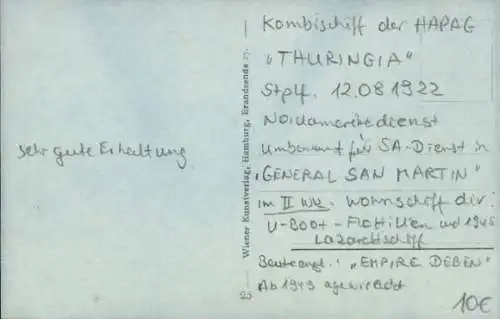 Kombischiff der HAPAG
"THURINGIA"
Stplf. 12.08 1922
Nordamerikadienst
umbenannt für SA-Dienst in
"GENERAL SAN MARTIN"
im II WK. Wohnschiff div.
U-Boot-Flottillen und 1945
Lazarettschiff
Beuteengl.: "EMPIRE DEBEN"
Ab 1949 abgewrackt
10€
sehr gute Erhaltung
Wiener Kunstverlag, Hamburg, Brandsende
25